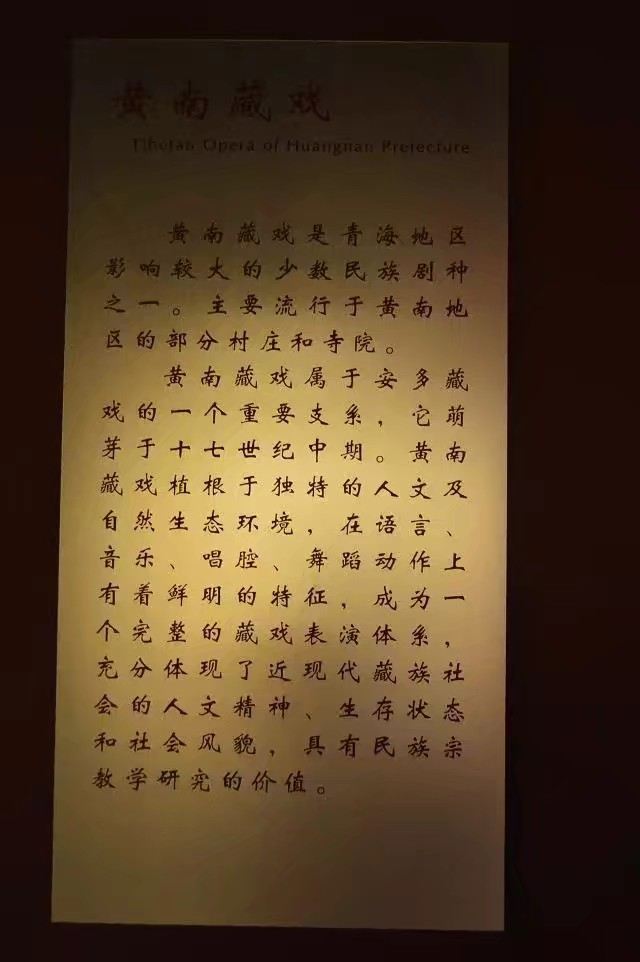 黄南藏戏
Tibetan Opera of Huangnan Prefecture
黄南藏戏是青海地区
影响较大的少数民族剧种
之一。主要流行于黄南地
区的部分村庄和寺院。
黄南藏戏属于安多藏
戏的一个重要支系，它萌
芽于十七世纪中期。黄南
藏戏植根于独特的人文及
自然生态环境，在语言、
音乐、唱腔、舞蹈动作上
有着鲜明的特征，成为一
个完整的藏戏表演体系，
充分体现了近现代藏族社
会的人文精神、生存状态
和社会风貌，具有民族宗
教学研究的价值。